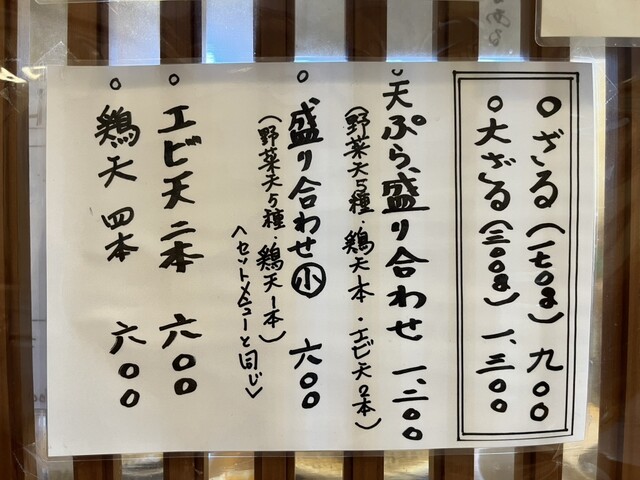 ○ざる(一七〇g)九〇〇
○大ざる(三〇〇g)一、三〇〇
○天ぷら盛り合わせ 一、二〇〇
(野菜天5種・鶏天1本・エビ天2本)
○盛り合わせ㊙小 六〇〇
(野菜天5種・鶏天1本)
〈セットメニューと同じ〉
○エビ天二本 六〇〇
○鶏天 四本 六〇〇